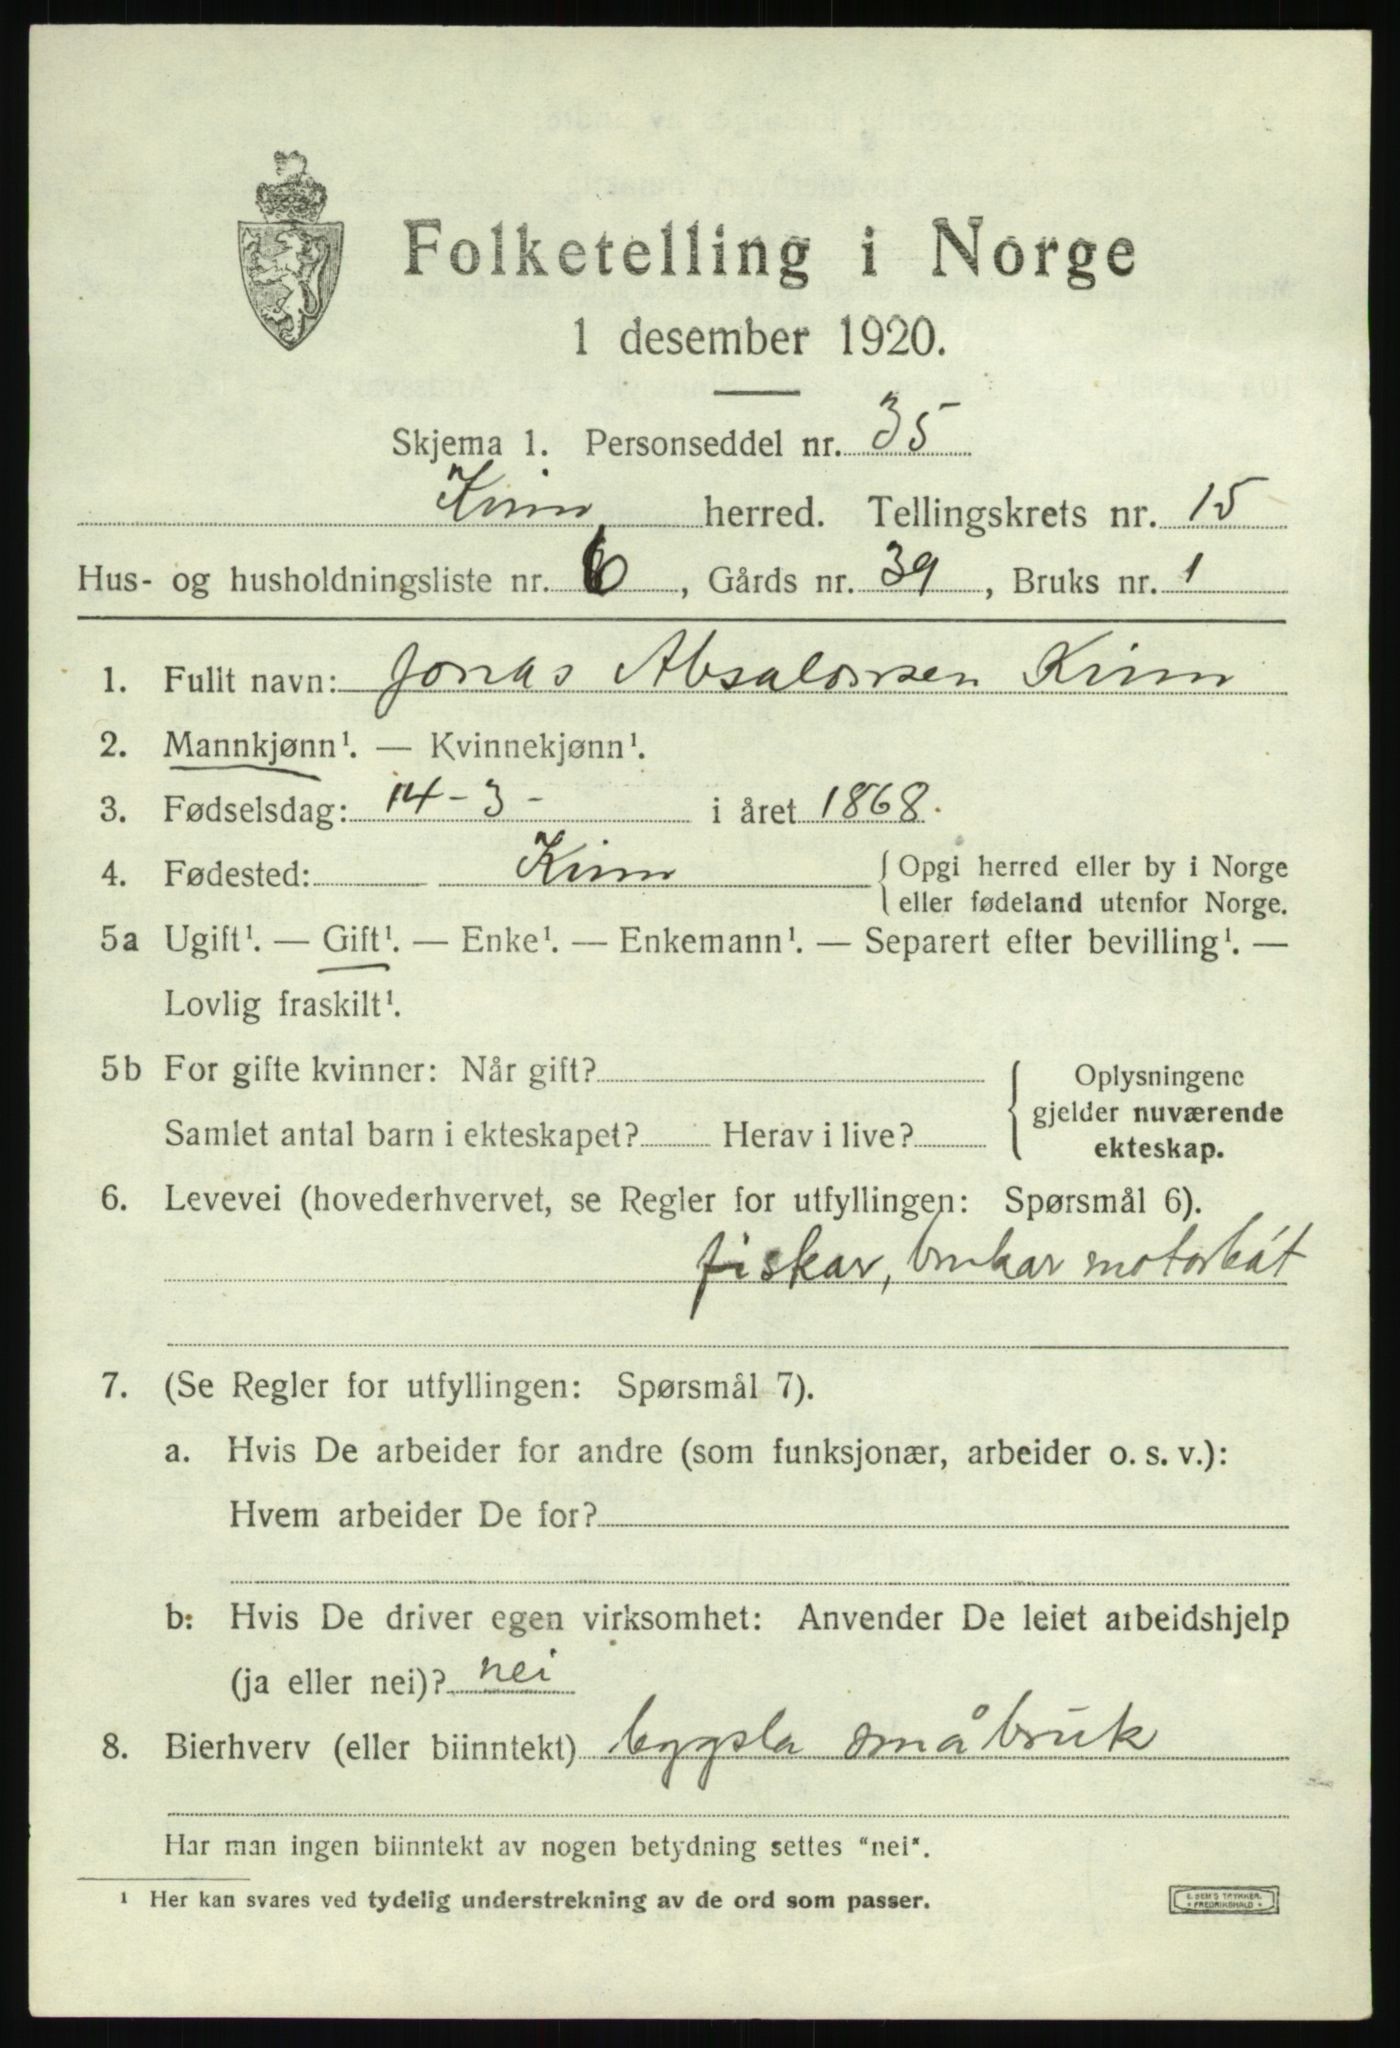 Folketelling i Norge
1 desember 1920.
Skjema 1. Personseddel nr. 35
Kinn herred. Tellingskrets nr. 15
Hus- og husholdningsliste nr. 6, Gårds nr. 39, Bruks nr. 1
1. Fullt navn: Jonas Absalonsen Kinn
2. Mannkjønn¹. — Kvinnekjønn¹.
3. Fødselsdag: 14-3- i året 1868.
4. Fødested: Kinn {Opgi herred eller by i Norge
eller fødeland utenfor Norge.
5a Ugift¹. — Gift¹. — Enke¹. — Enkemann¹. — Separert efter bevilling¹. —
Lovlig fraskilt¹.
5b For gifte kvinner: Når gift? { Oplysningene
gjelder nuværende
Samlet antal barn i ekteskapet? Herav i live? ekteskap.
6. Levevei (hovederhvervet, se Regler for utfyllingen: Spørsmål 6).
fiskar, brukar motorbåt
7. (Se Regler for utfyllingen: Spørsmål 7).
a. Hvis De arbeider for andre (som funksjonær, arbeider o. s. v.):
Hvem arbeider De for?
b: Hvis De driver egen virksomhet: Anvender De leiet arbeidshjelp
(ja eller nei)? nei
8. Bierhverv (eller biinntekt) bygsla småbruk
Har man ingen biinntekt av nogen betydning settes "nei".
¹ Her kan svares ved tydelig understrekning av de ord som passer.
E. SEM'S TRYKKERI
FREDRIKSHALD